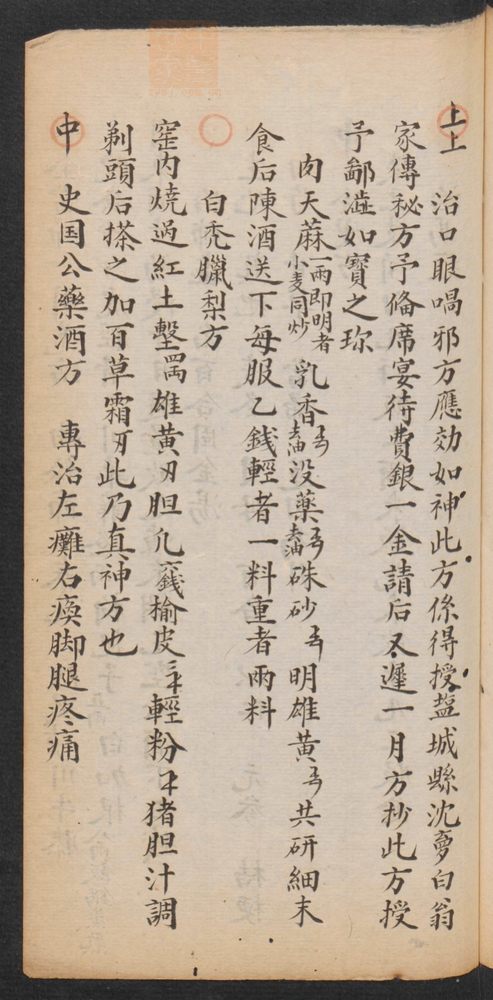 上上 治口眼喎邪方應効如神此方係得授盐城縣沈夢白翁
家傳秘方予俻席宴待費銀一金請后又遲一月方抄此方授
予鄙澁如寳之珎
肉天蔴一兩即明者小麦同炒 乳香去油 没藥去油 硃砂 明雄黄 共研細末
食后陳酒送下每服乙錢輕者一料重者兩料
白秃臘梨方
窑内燒過紅土墼四兩雄黄 胆凡六錢榆皮三 輕粉 猪胆汁調
剃頭后搽之加百草霜 此乃真神方也
中 史国公藥酒方 專治左癱右瘓脚腿疼痛